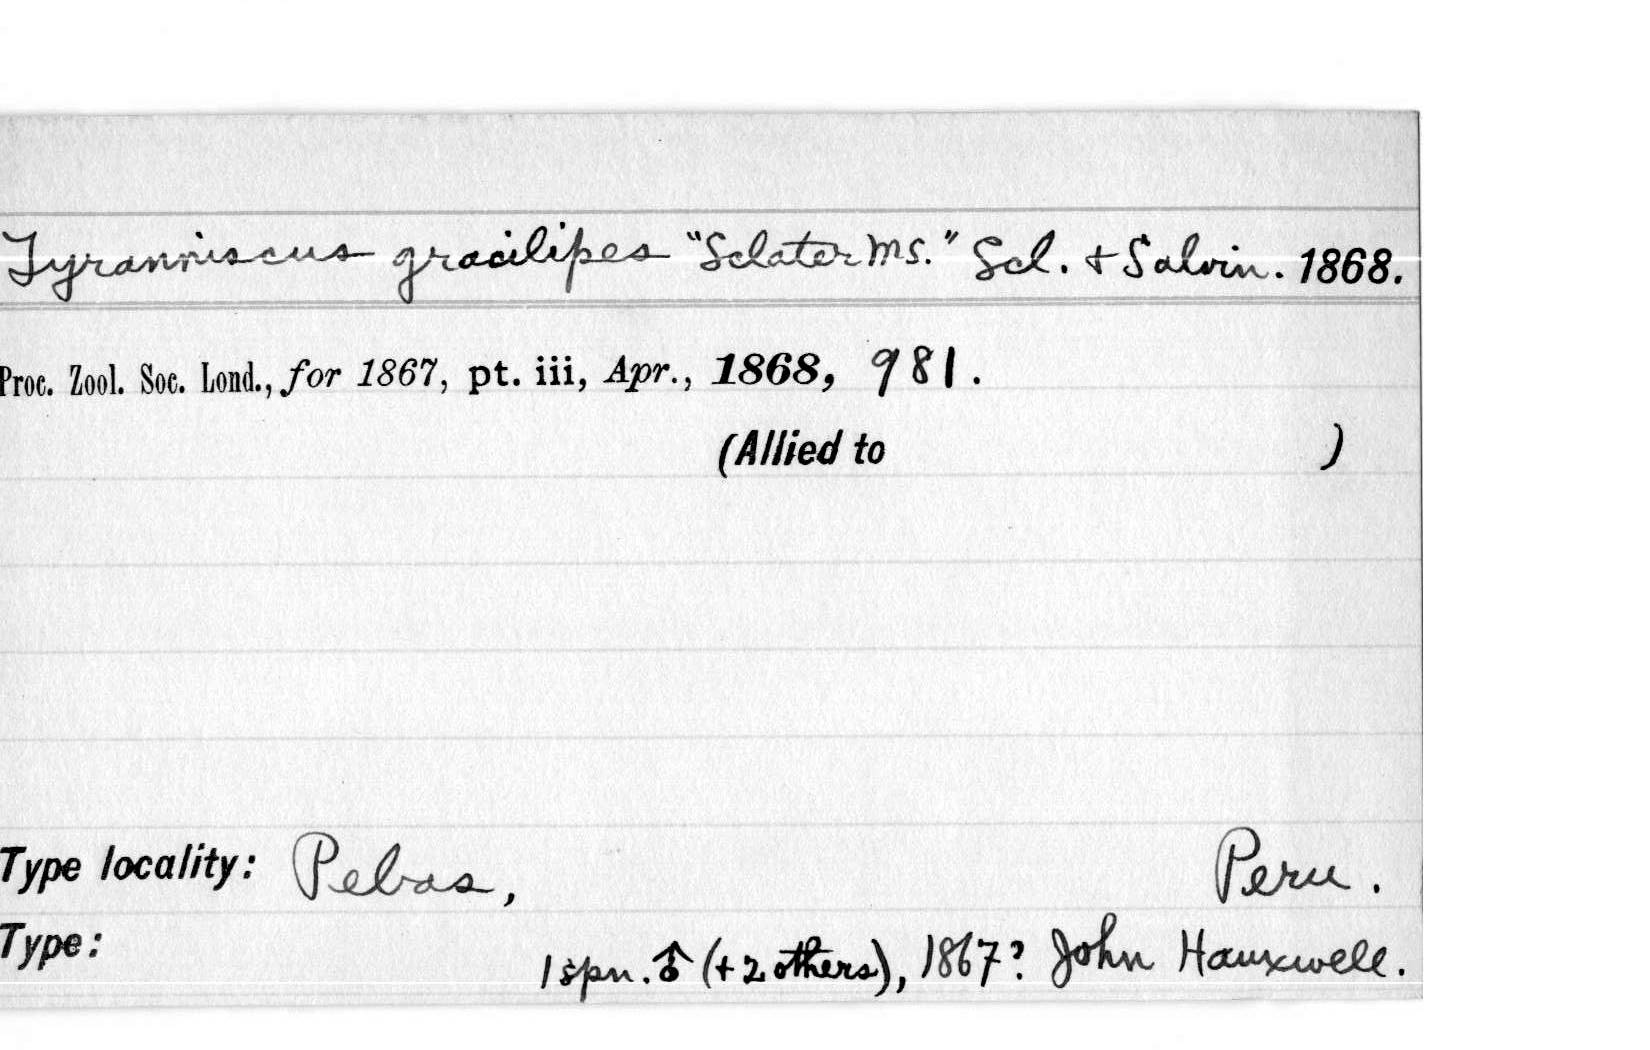 Tyranniscus gracilipes "Sclater MS." Scl. + Salvin. 1868.
Proc. Zool. Soc. Lond., for 1867, pt. iii, Apr., 1868, 981.
(Allied to )
Type locality: Pebas, Peru.
Type: 1 spn. ♂ (+ 2 others), 1867? John Hauxwell.